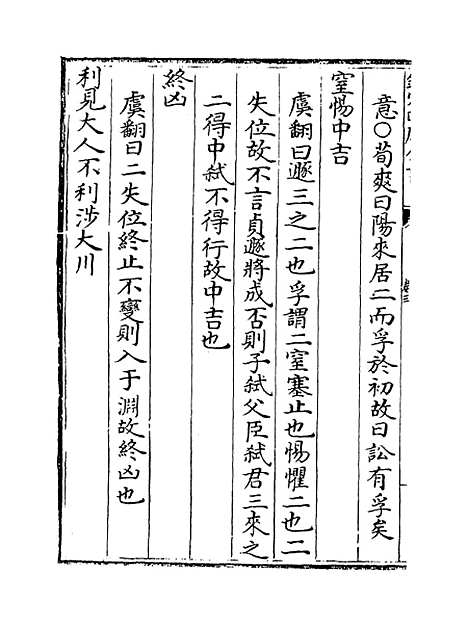 意○荀爽曰陽來居二而孚於初故曰訟有孚矣
窒惕中吉
虞翻曰遯三之二也孚謂二窒塞止也惕懼二也二
失位故不言貞遯將成否則子弑父臣弑君三來之
二得中弑不得行故中吉也
終凶
虞翻曰二失位終止不變則入于淵故終凶也
利見大人不利涉大川